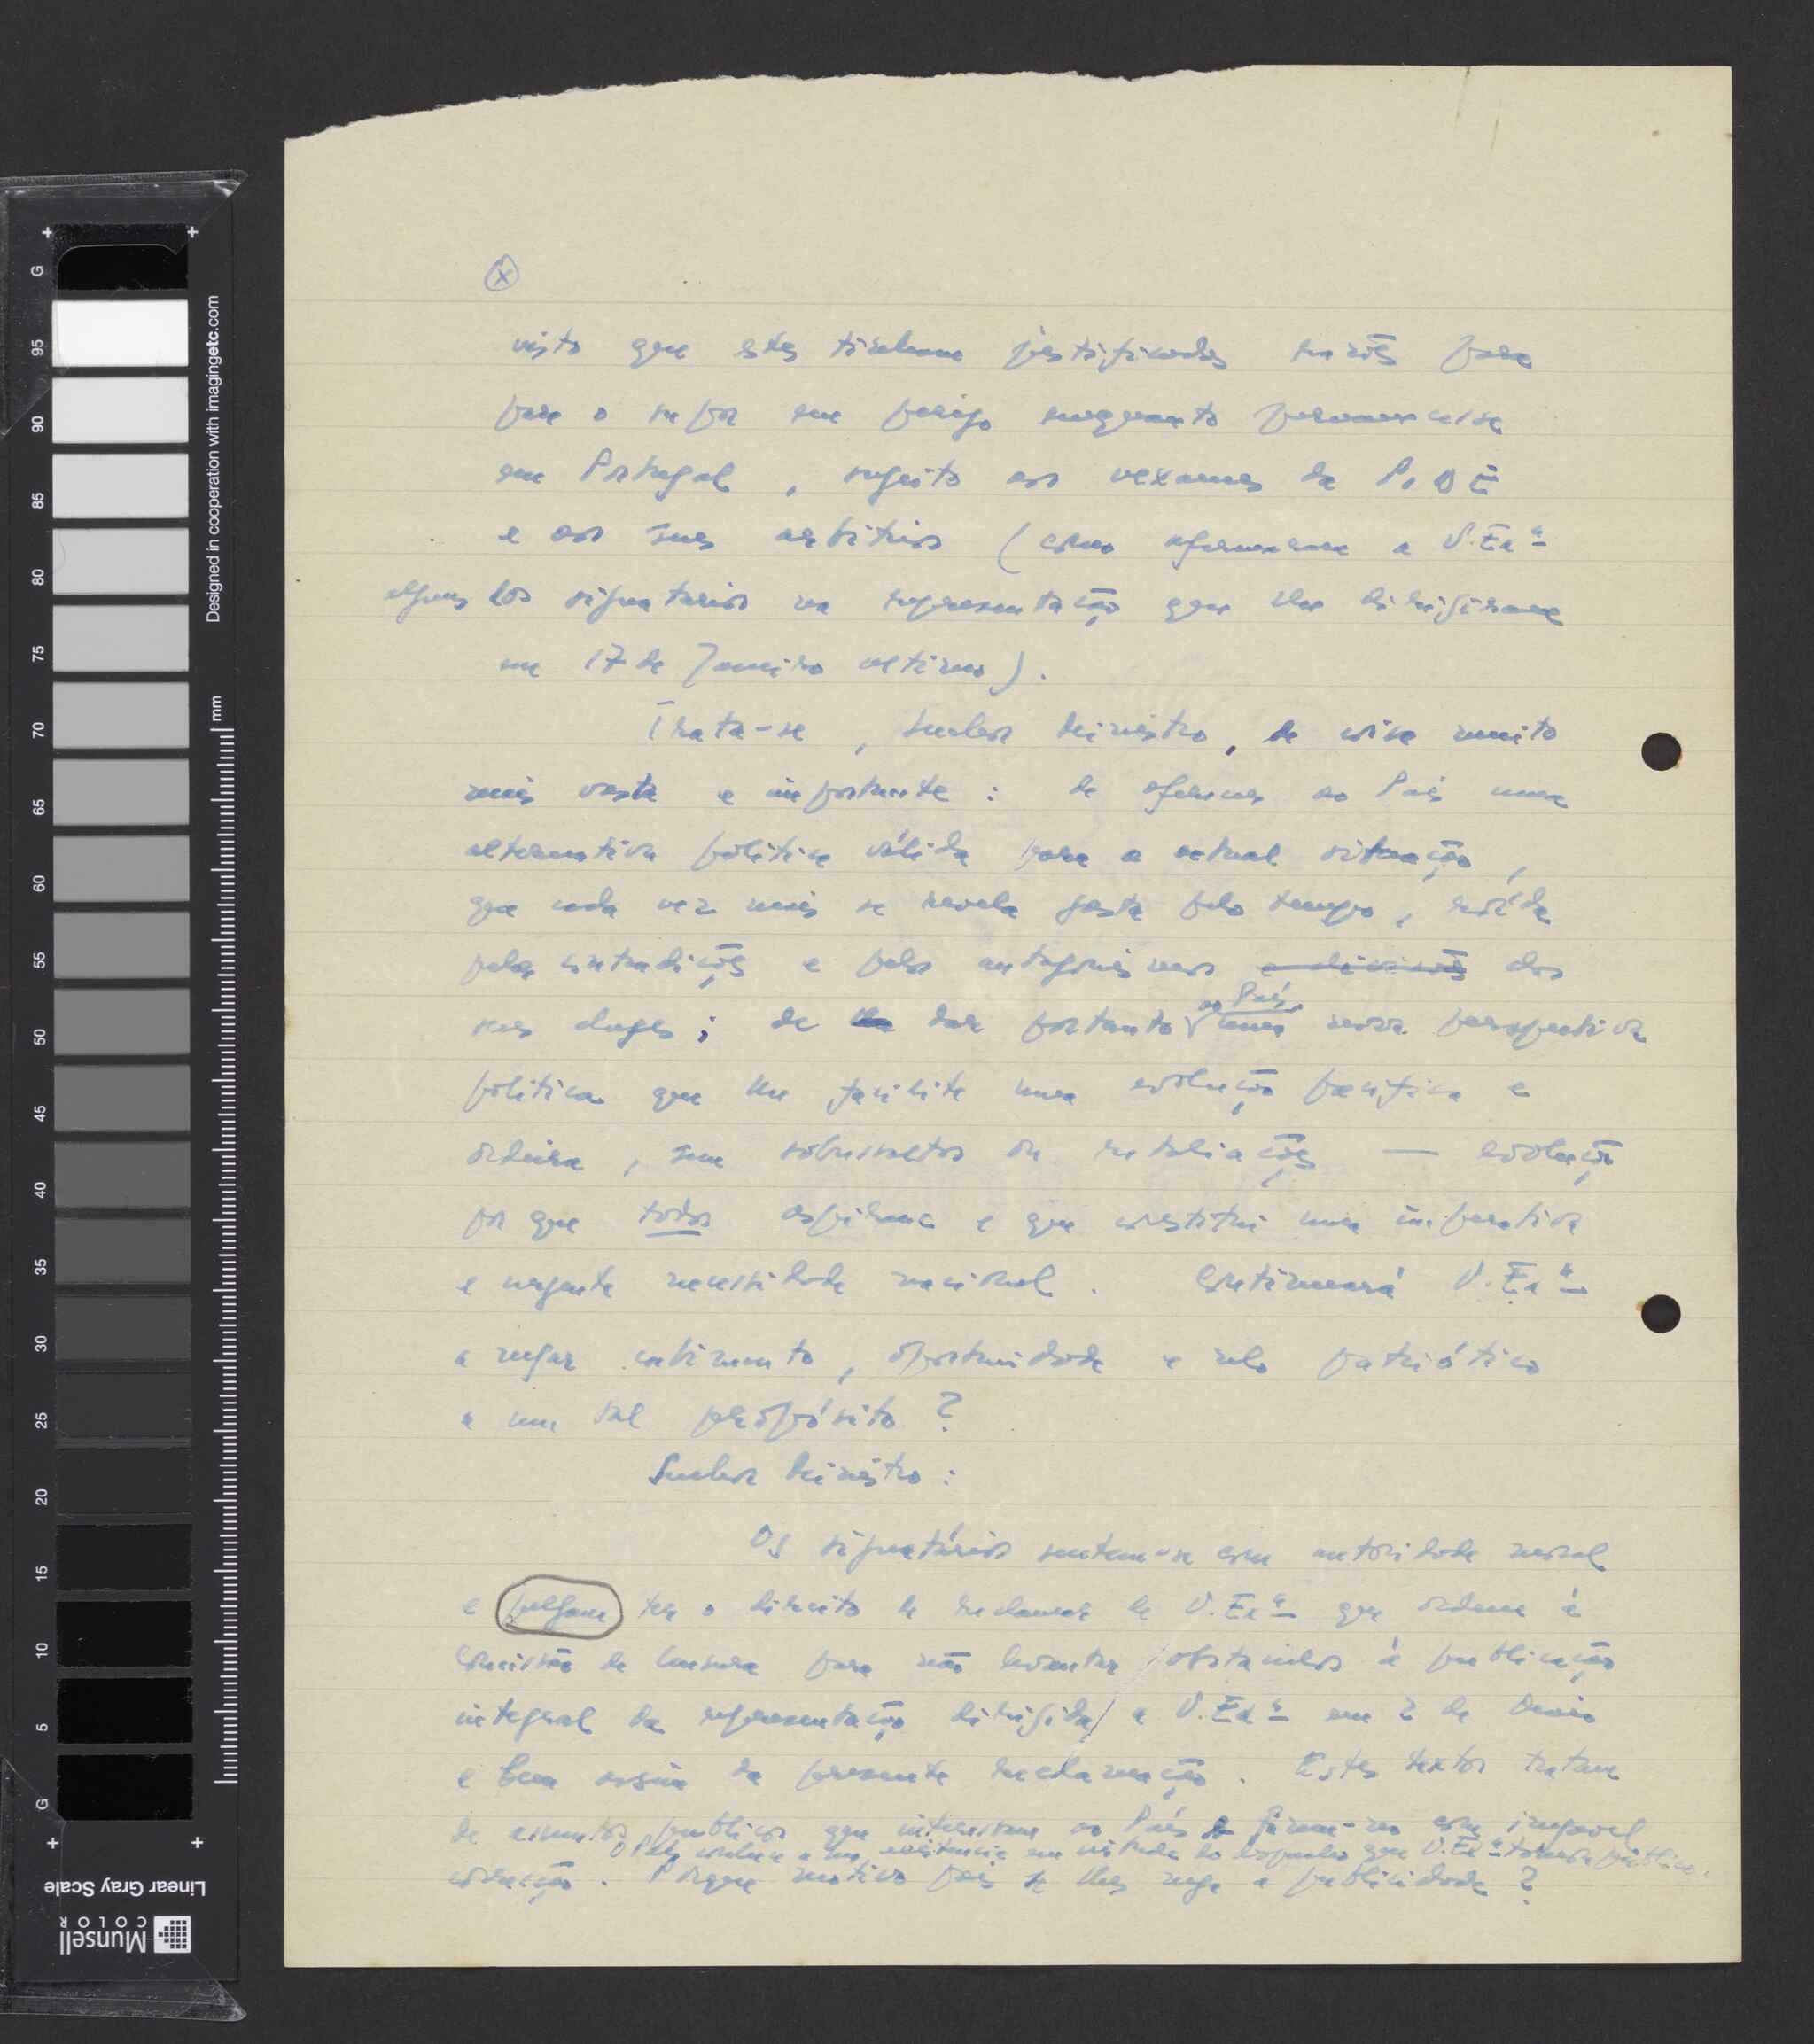 X
visto que estes tinham justificadas razões para
para o supor em perigo enquanto permanecesse
em Portugal, sugeito aos vexames da PIDE
e aos seus arbitrios (como afirmaram a V. Exª
alguns dos signatarios na representação que lhe dirigiram
em 17 de Janeiro ultimo).
Trata-se, Senhor Ministro, de coisa muito
mais vasta e importante: de oferecer ao País uma
alternativa política válida para a actual situação,
que cada vez mais se revela gasta pelo tempo, roída
pelas contradições e pelos antagonismos e divisões dos
seus chefes; de dar portanto ao País uma nova perspectiva
politica que lhe facilite uma evolução pacífica e
ordeira, sem sobressaltos ou retaliações — evolução
por que todos aspiram e que constitui uma imperativa
e urgente necessidade nacional. Continuará V. Exª
a negar cabimento, oportunidade e zelo patriótico
a um tal propósito?
Senhor Ministro:
Os signatários sentem-se com autoridade moral
e julgam ter o direito de reclamar de V. Exª que ordene à
Comissão de Censura para não levantar obstaculos à publicação
integral da representação dirigida a V. Exª em 2 de Maio
e bem assim da presente reclamação. Estes textos tratam
de assuntos publicos que interessam ao País
O País conhece a sua existencia em virtude do despacho que V. Exª tornou público.
correcção. Porque motivo pois se lhes nega a publicidade?